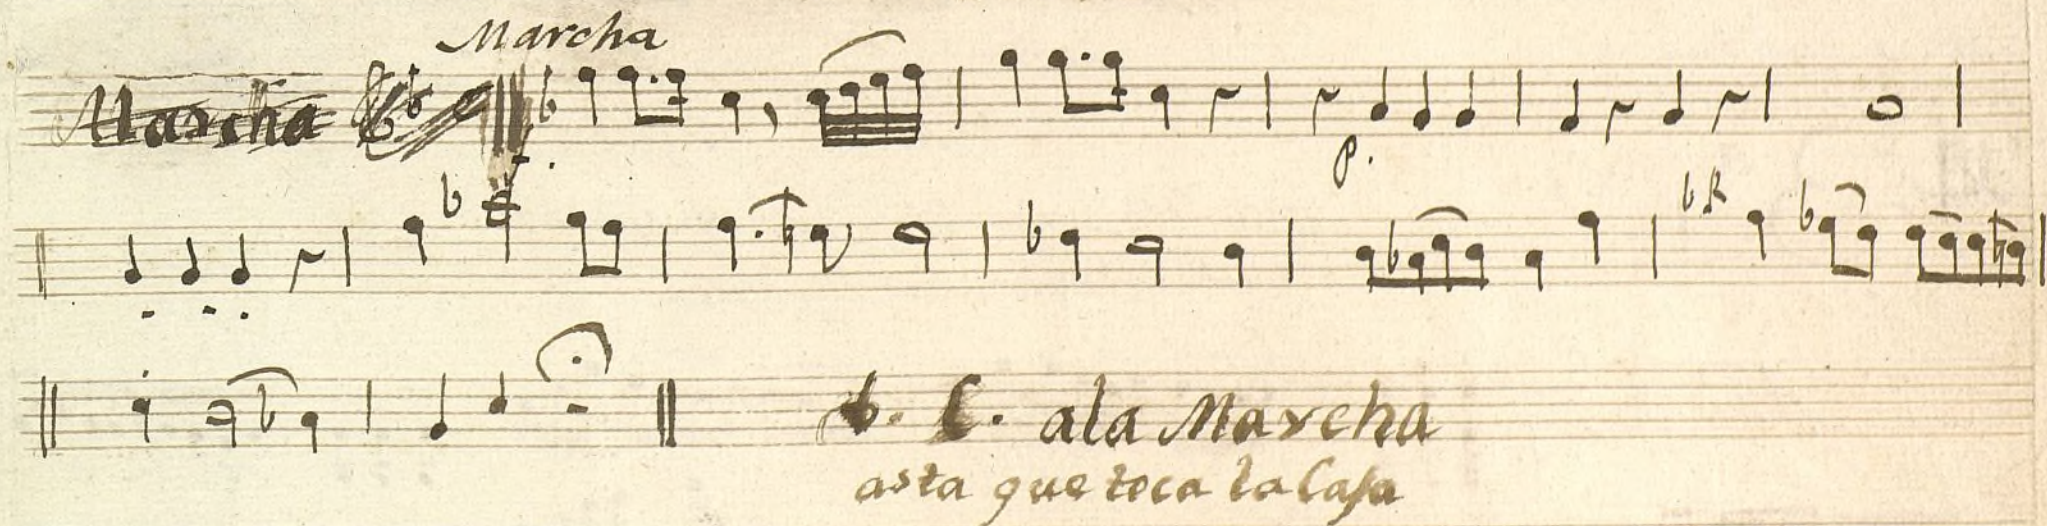 Marcha
Marcha
P.
D. C. a la Marcha
asta que toca la Caja